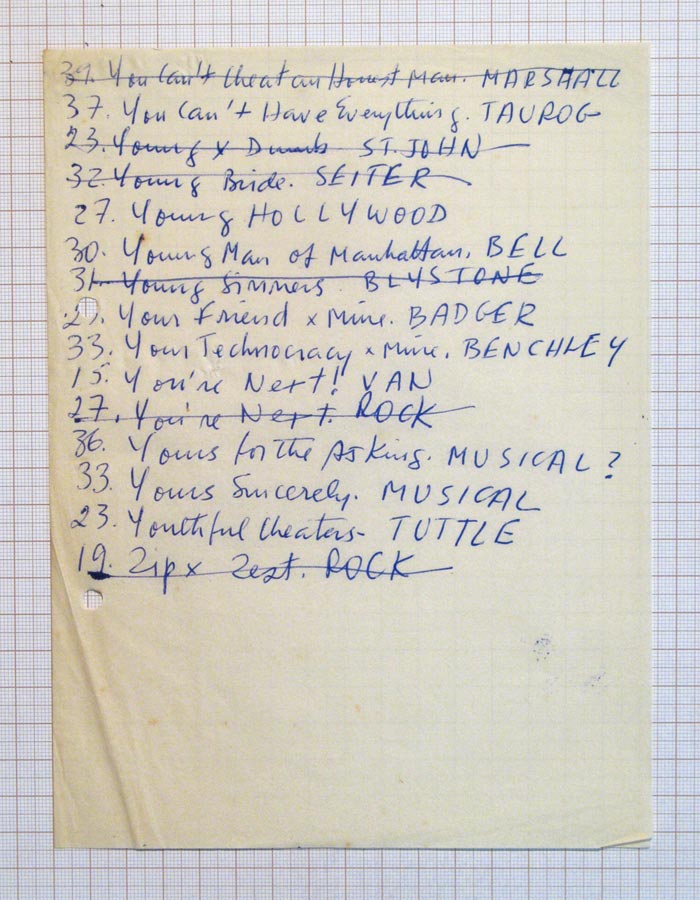 39. You Can't Cheat an Honest Man. MARSHALL
37. You Can't Have Everything. TAUROG
23. Young x Dumb ST. JOHN
32. Young Bride. SEITER
27. Young HOLLYWOOD
30. Young Man of Manhattan. BELL
31. Young Sinners. BLYSTONE
Your Friend x Mine. BADGER
33. Your Technocracy x Mine. BENCHLEY
15. You're Next! VAN
27. You're Next. ROCK
36. Yours for the Asking. MUSICAL?
33. Yours Sincerely. MUSICAL
23. Youthful Cheaters- TUTTLE
19. Zip x Zest. ROCK